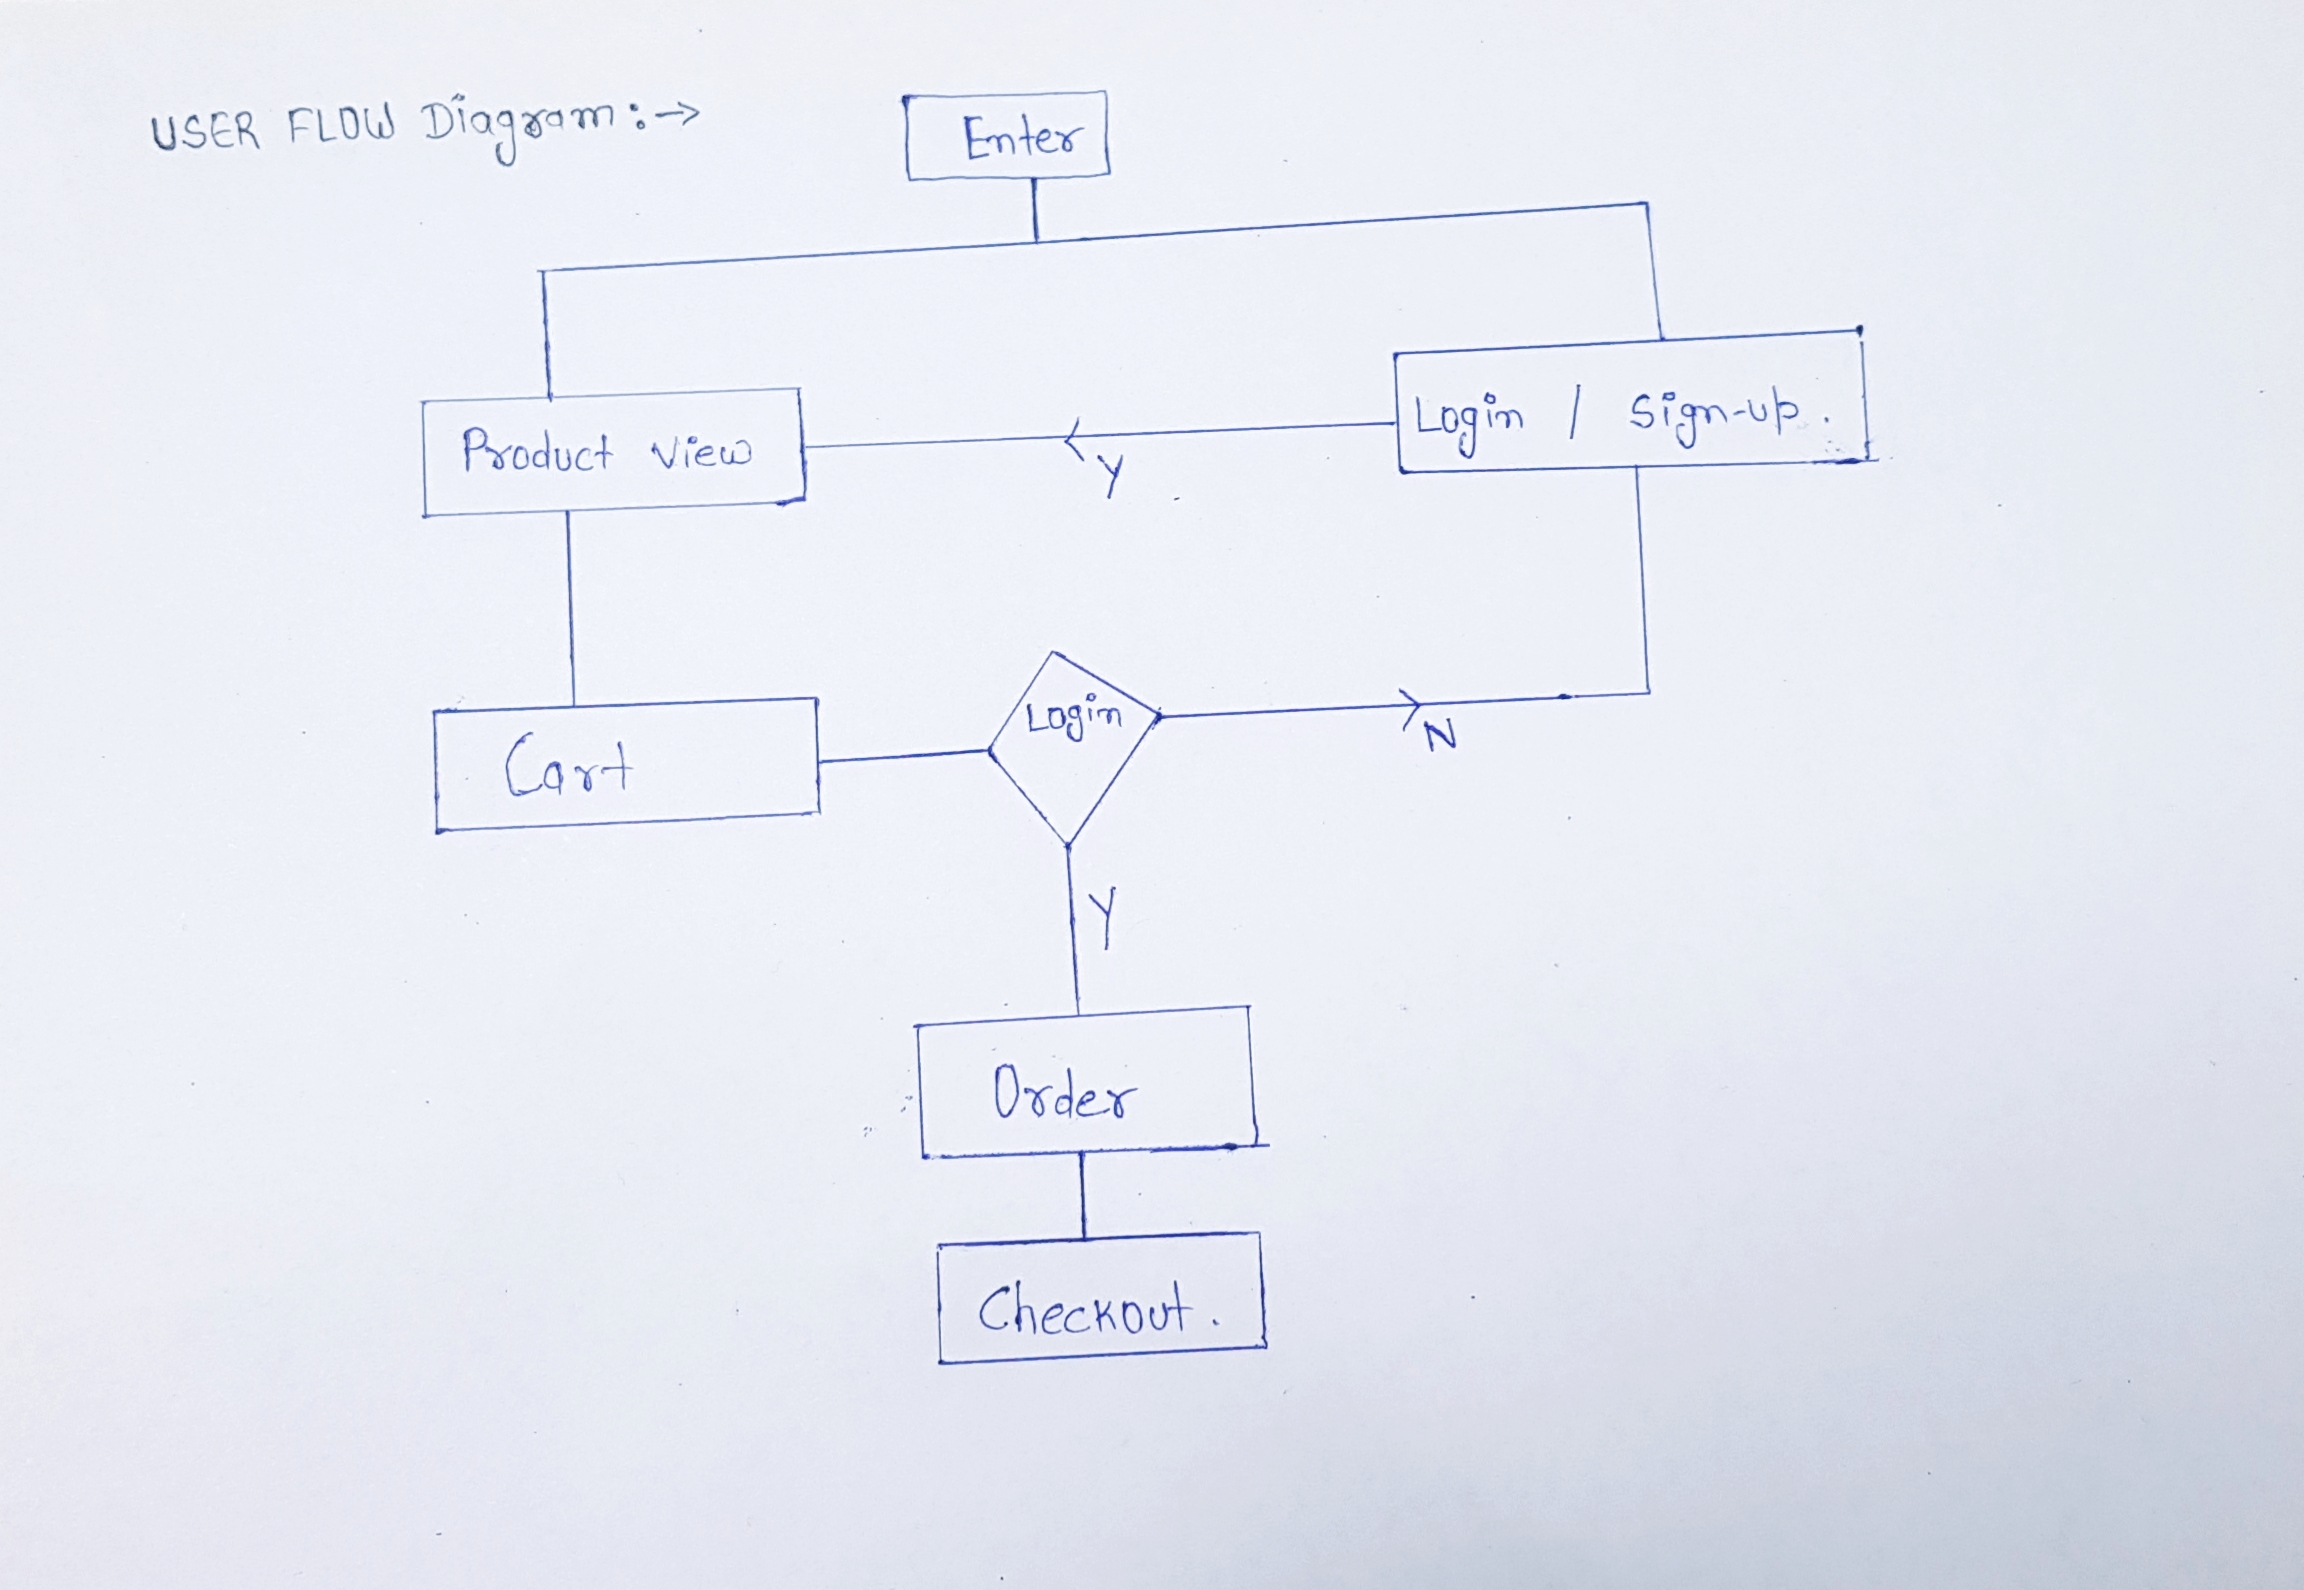 USER FLOW Diagram :->
Enter
Product view
Login / Sign-up.
Y
Cart
Login
N
Y
Order
Checkout.